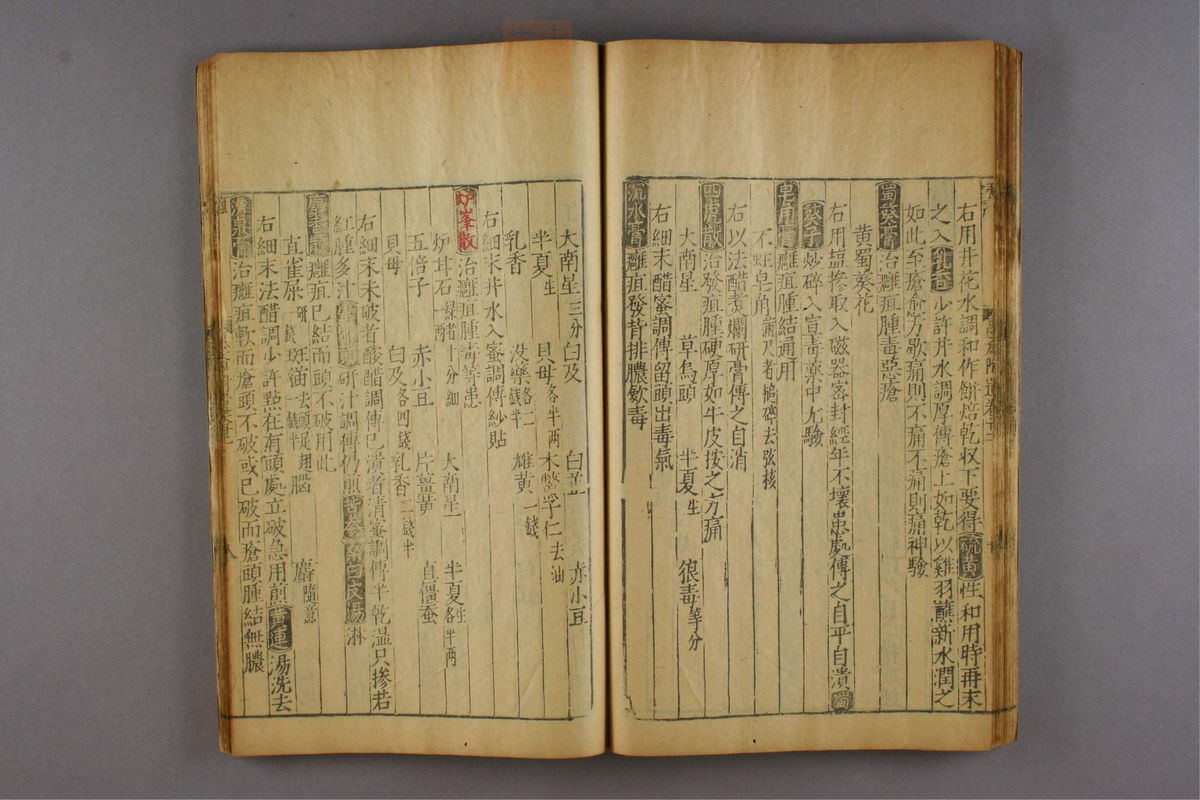 右用井花水調和作餅焙乾収下要得硫黄性和用時再末
之入乳香少許井水調厚傅瘡上如乾以雞羽蘸新水潤之
如此至瘡愈方歇痛則不痛不痛則痛神驗
蜀葵膏治癰疽腫毒惡瘡
黃蜀葵花
右用塩摻取入磁器密封經年不壞患處傅之自平自潰蜀
葵子炒碎入宣毒藥中尤驗
皂角膏癰疽腫結通用
不蛀皂角滿尺者搥碎去弦核
右以法醋煑爛研膏傅之自消
四虎散治發疽腫硬厚如牛皮按之方痛
大南星 草烏頭 半夏生 狼毒等分
右細末醋蜜調傅留頭出毒氣
沉水膏癰疽發背排膿歛毒
大南星三分 白及 白芷 赤小豆
半夏生 貝母各半兩 木鱉子仁去油
乳香 没藥各二錢半 雄黃一錢
右細末井水入蜜調傅紗貼
炉峯散治癰疽腫毒等患
炉甘石一兩 大南星 半夏生各半兩
五倍子 赤小豆 片薑黃 直僵蚕
貝母 白及各四錢 乳香二錢半
右細末未破者酸醋調傅已潰者清蜜調傅半乾溫只摻若
紅腫多汁研汁調傅仍煎苦參桑白皮湯淋
麝香散癰疽已結而頭不破用此
直雀屎研一錢 斑猫去頭足翅一錢半 腦 麝隨意
右細末法醋調少許點在有頭處立破急用煎黃連湯洗去
治癰疽軟而瘡頭不破或已破而瘡頭腫結無膿